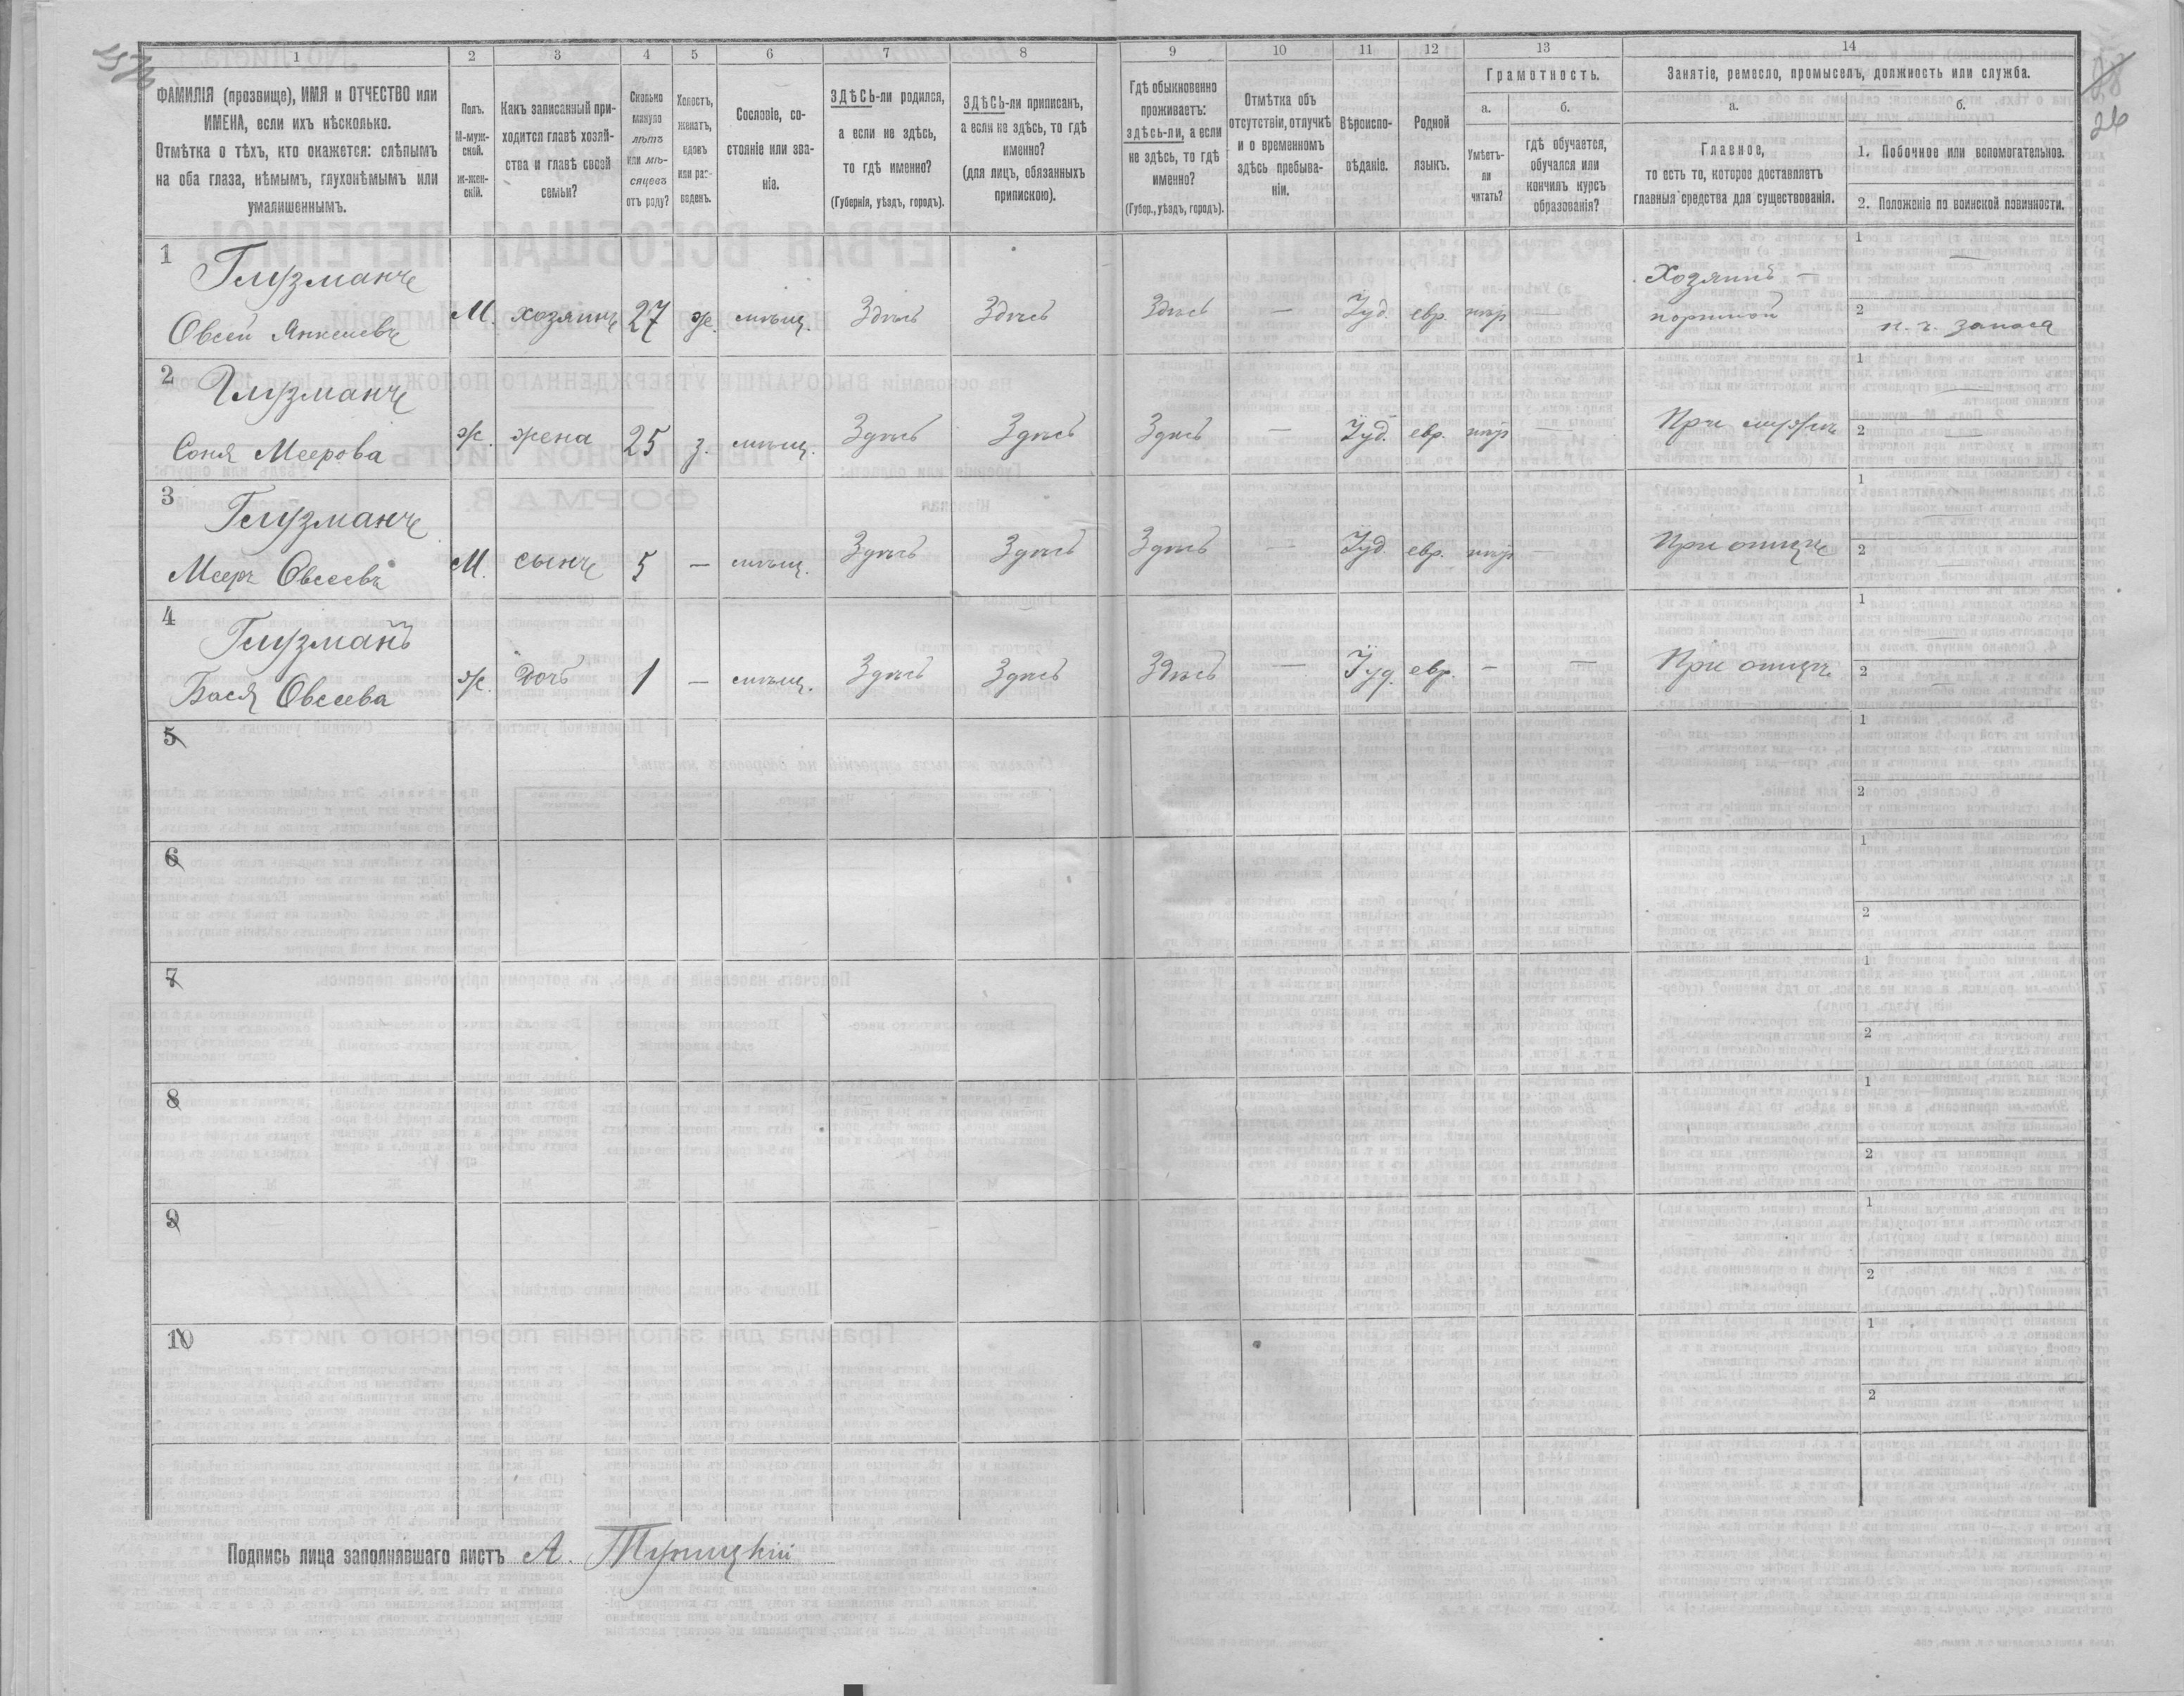 26
1
2
3
4
5
6
7
8
9
10
11
12
13
14
ФАМИЛІЯ (прозвище), ИМЯ и ОТЧЕСТВО или
ИМЕНА, если ихъ нѣсколько.
Отмѣтка о тѣхъ, кто окажется: слѣпымъ
на оба глаза, нѣмымъ, глухонѣмымъ или
умалишеннымъ.
Полъ.
М-муж-
ской.
Ж-жен-
скій.
Какъ записанный при-
ходится главѣ хозяй-
ства и главѣ своей
семьи?
Сколько
минуло
лѣтъ
или мѣ-
сяцевъ
отъ роду?
Холостъ,
женатъ,
вдовъ
или раз-
веденъ.
Сословіе, со-
стояніе или зва-
ніе.
ЗДѢСЬ-ли родился,
а если не здѣсь,
то гдѣ именно?
(Губернія, уѣздъ, городъ).
ЗДѢСЬ-ли приписанъ,
а если не здѣсь, то гдѣ
именно?
(для лицъ, обязанныхъ
припискою).
Гдѣ обыкновенно
проживаетъ:
здѣсь-ли, а если
не здѣсь, то гдѣ
именно?
(Губер., уѣздъ, городъ).
Отмѣтка объ
отсутствіи, отлучкѣ
и о временномъ
здѣсь пребыва-
ніи.
Вѣроиспо-
вѣданіе.
Родной
языкъ.
Грамотность.
а.
Умѣетъ-
ли
читать?
б.
гдѣ обучается,
обучался или
кончилъ курсъ
образованія?
Занятіе, ремесло, промыселъ, должность или служба.
а.
Главное,
то есть то, которое доставляетъ
главныя средства для существованія.
б.
1. Побочное или вспомогательное.
2. Положеніе по воинской повинности.
1 Глузманъ
Овсей Янкелевъ
М. хозяинъ 27 ж. мѣщ. Здѣсь Здѣсь Здѣсь — Іуд. евр. нѣт —
Хозяинъ —
портной
1 —
2 н. ч. запаса
2 Глузманъ
Соня Меерова
ж. жена 25 з. мѣщ. Здѣсь Здѣсь Здѣсь — Іуд. евр. нѣт —
При мужѣ
1 —
2 —
3 Глузманъ
Мееръ Овсеевъ
М. сынъ 5 — мѣщ. Здѣсь Здѣсь Здѣсь — Іуд. евр. нѣт —
При отцѣ
1 —
2 —
4 Глузманъ
Бася Овсеева
ж. дочь 1 — мѣщ. Здѣсь Здѣсь Здѣсь — Іуд. евр. — —
При отцѣ
1 —
2 —
5
1
2
6
1
2
7
1
2
8
1
2
9
1
2
10
1
2
Подпись лица заполнявшаго листъ А.